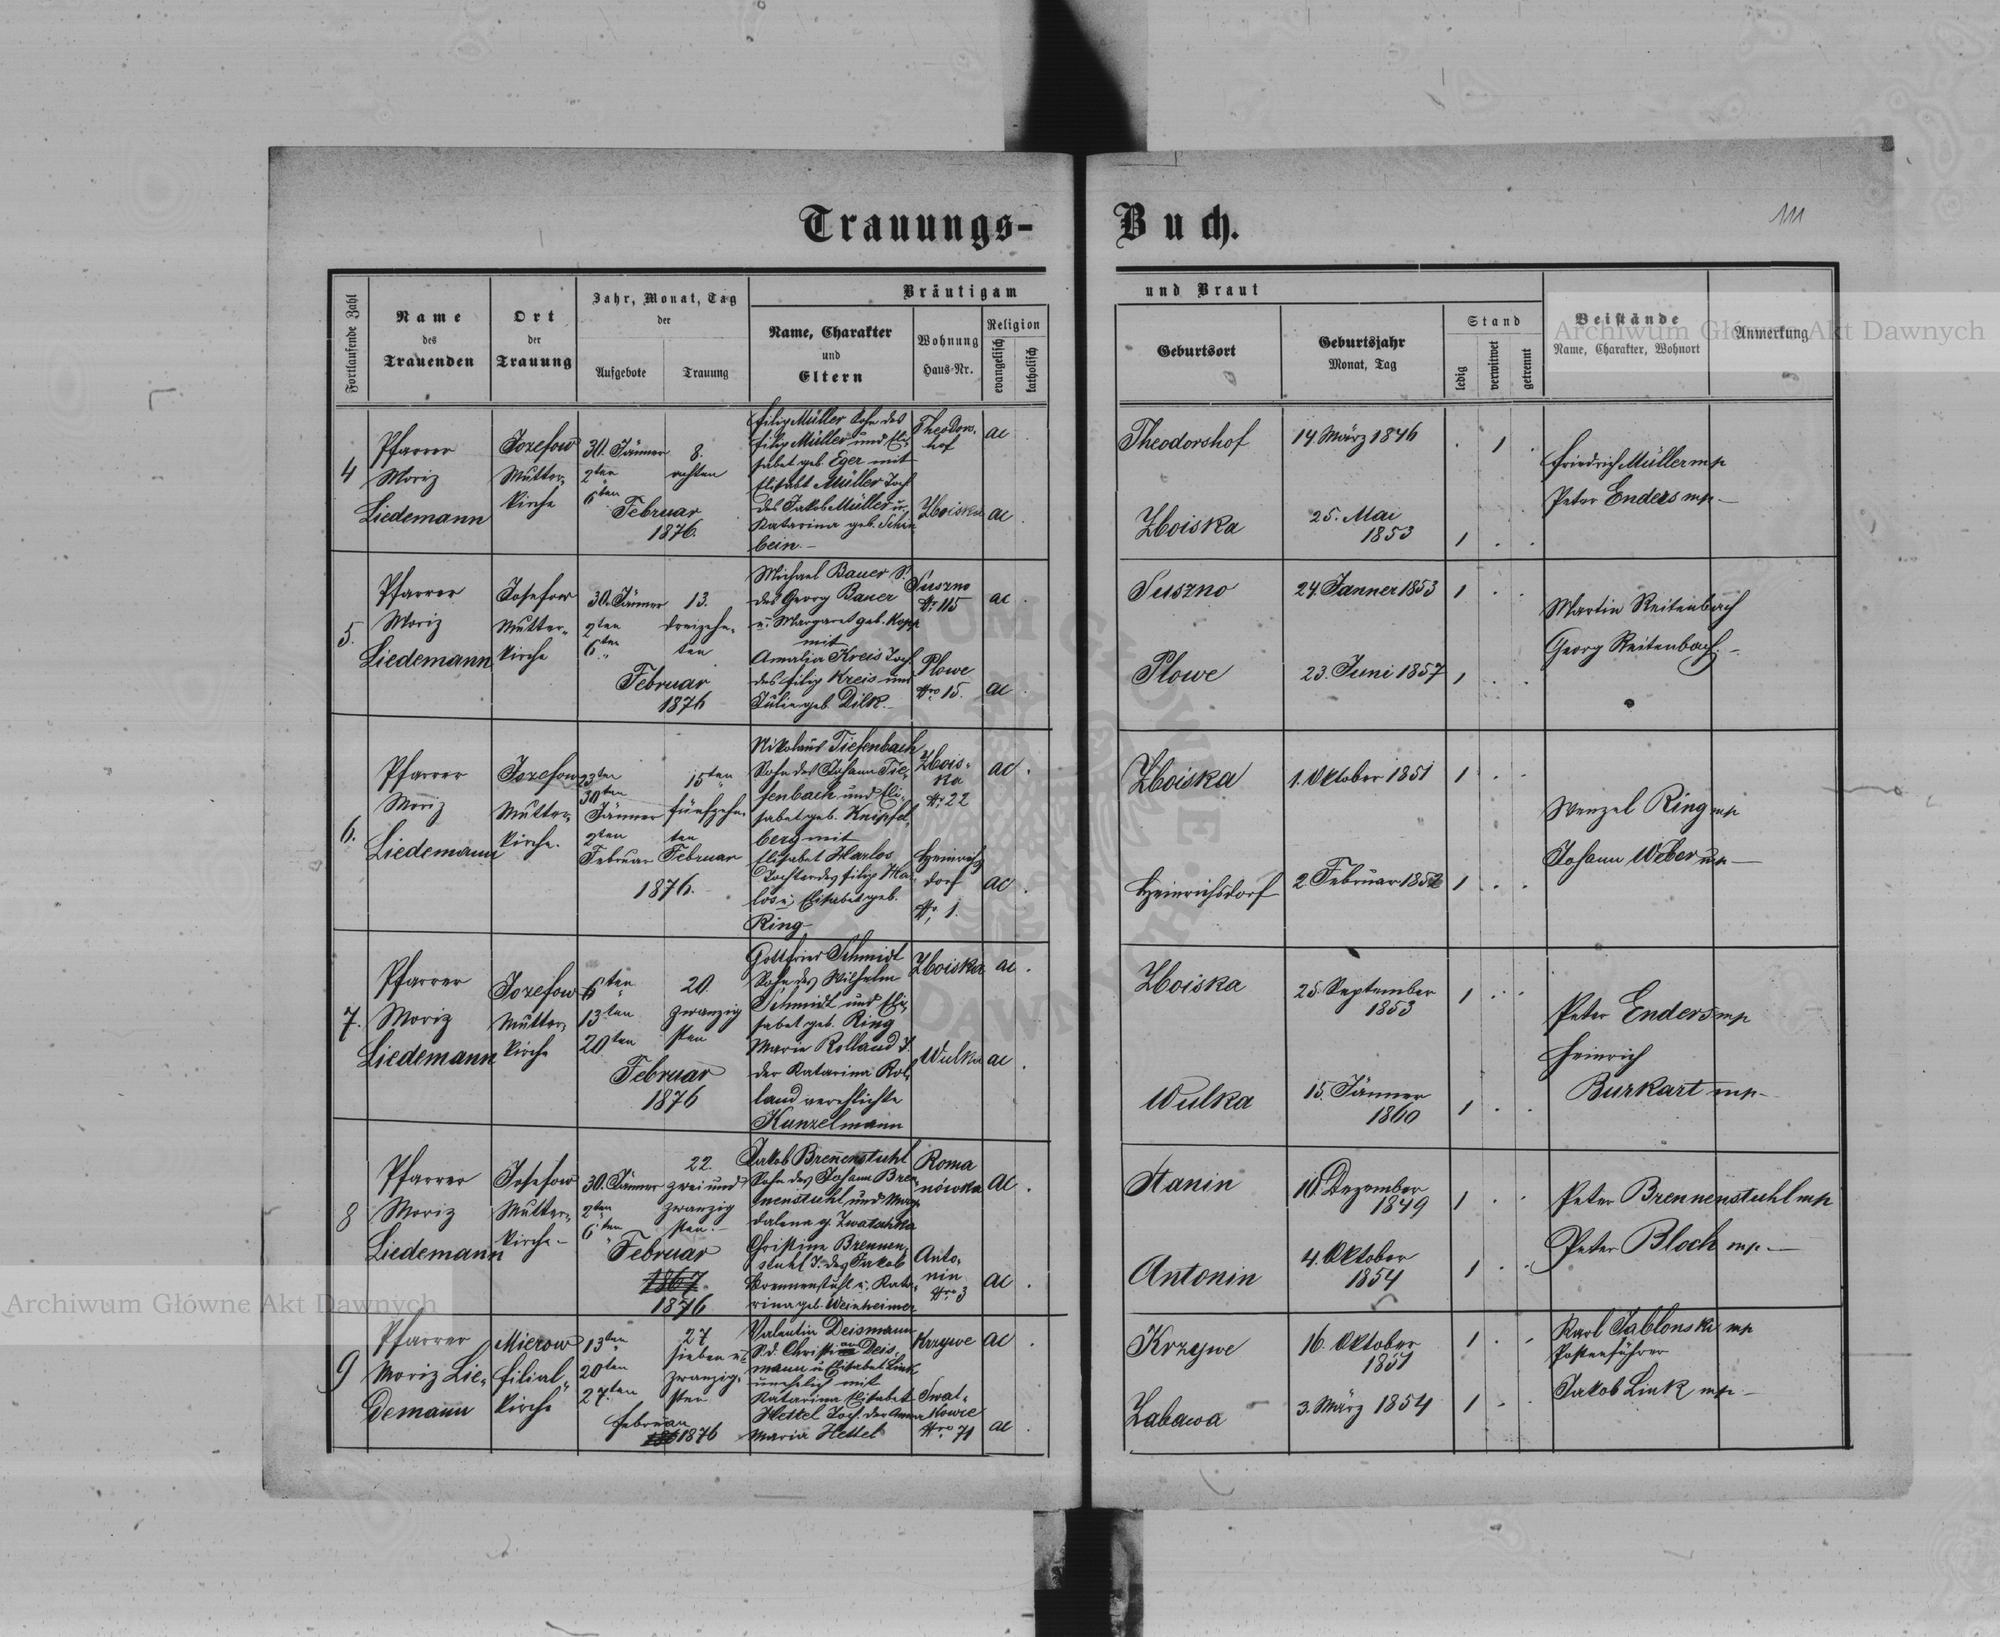 Trauungs-Buch.
111
Fortlaufende Zahl
Name
des
Trauenden
Ort
der
Trauung
Jahr, Monat, Tag
der
Aufgebote
Trauung
Bräutigam
und Braut
Name, Charakter
und
Eltern
Wohnung
Haus-Nr.
Religion
evangelisch
katholisch
Geburtsort
Geburtsjahr
Monat, Tag
Stand
ledig
verwitwet
getrennt
Beistände
Name, Charakter, Wohnort
Anmerkung
4
Pfarrer
Moriz
Liedemann
Jozefow
Mutter-
kirche
30. Jänner
2ten
6ten
8.
achten
Februar
1876.
Filip Müller Sohn des
Filip Müller und Eli-
sabet geb. Eger mit
Elisabt Müller Toch
des Jakob Müller u.
Katarina geb. Schin
bein.-
Theodors-
hof
Zboiska
ac
ac
Theodorshof
Zboiska
14 März 1846
25. Mai
1853
1
1
Friedrich Müller mp
Peter Enders mp-
5.
Pfarrer
Moriz
Liedemann
Josefow
Mutter-
kirche
30. Jänner
2ten
6ten
13.
dreizehn-
ten
Februar
1876
Michael Bauer S.
des Georg Bauer
u. Margaret geb. Kopp
mit
Amalia Kreis Toch
des Filip Kreis und
Julie geb. Dilk.-
Suszno
Nr 115
Plowe
Nro 15.
ac
ac
Suszno
Plowe
24. Janner 1853
23. Juni 1857
1
1
Martin Reitenbach
Georg Reitenbach.-
6.
Pfarrer
Moriz
Liedemann
Jozefow
Mutter-
kirche.
23ten
30ten
Jänner
2ten
Februar
15ten
fünfzehn-
ten
Februar
1876.
Nikolaus Tiefenbach
Sohn des Johann Tie-
fenbach und Eli-
sabet geb. Knipfel-
berg mit
Elisabet Harlos
Tochter des Filip Har-
los u. Elisabet geb.
Ring
Zbois-
ka
Nr 22
Heinrichs
dorf
Nr. 1.
ac
ac
Zboiska
Heinrichsdorf
1. Oktober 1851
2. Februar 1852
1
1
Wenzel Ring mp
Johann Weber mp-
7.
Pfarrer
Moriz
Liedemann
Jozefow
Mutter-
kirche
6ten
13ten
20ten
20
zwanzig
sten
Februar
1876
Gottfried Schmidt
Sohn des Wilhelm
Schmidt und Eli-
sabet geb. Ring
Marie Rolland T.
der Katarina Rol-
land verehlichte
Kunzelmann
Zboiska
Wulka
ac
ac
Zboiska
Wulka
25. September
1853
15. Jänner
1860
1
1
Peter Enders mp
Heinrich
Burkart mp-
8
Pfarrer
Moriz
Liedemann
Josefow
Mutter-
kirche-
30. Jänner
2ten
6ten
22.
zwei und
zwanzig
sten.-
Februar
1867.
1876
Jakob Brenenstuhl
Sohn des Johann Bren-
nenstuhl und Mag-
dalena g. Zwatschka
Christine Brennen-
stuhl T. des Jakob
Brennenstuhl u. Kata-
rina geb. Weinheimer
Roma
nówka
Anto-
nin
Nro 3
ac
ac
Stanin
Antonin
10. Dezember
1849
4. Oktober
1854
1
1
Peter Brennenstuhl mp
Peter Bloch mp.-
9
Pfarrer
Moriz Lie-
demann
Mierow
filial-
kirche
13ten
20ten
27ten
27
sieben u.
zwanzig-
sten
Februar
1876
Valentin Deismann
S. d. Christian Deis-
mann u. Elisabet Link
unehelich mit
Katarina Elisabet
Hettel Toch. der Anna
Maria Hettel
Krzywe
Swat-
kowce
Nro 71
ac
ac
Krzywe
Zabawa
16. Oktober
1851
3. März 1854
1
1
Karl Jablonski mp
Postenführer
Jakob Link mp-
Archiwum Główne Akt Dawnych
Archiwum Główne Akt Dawnych